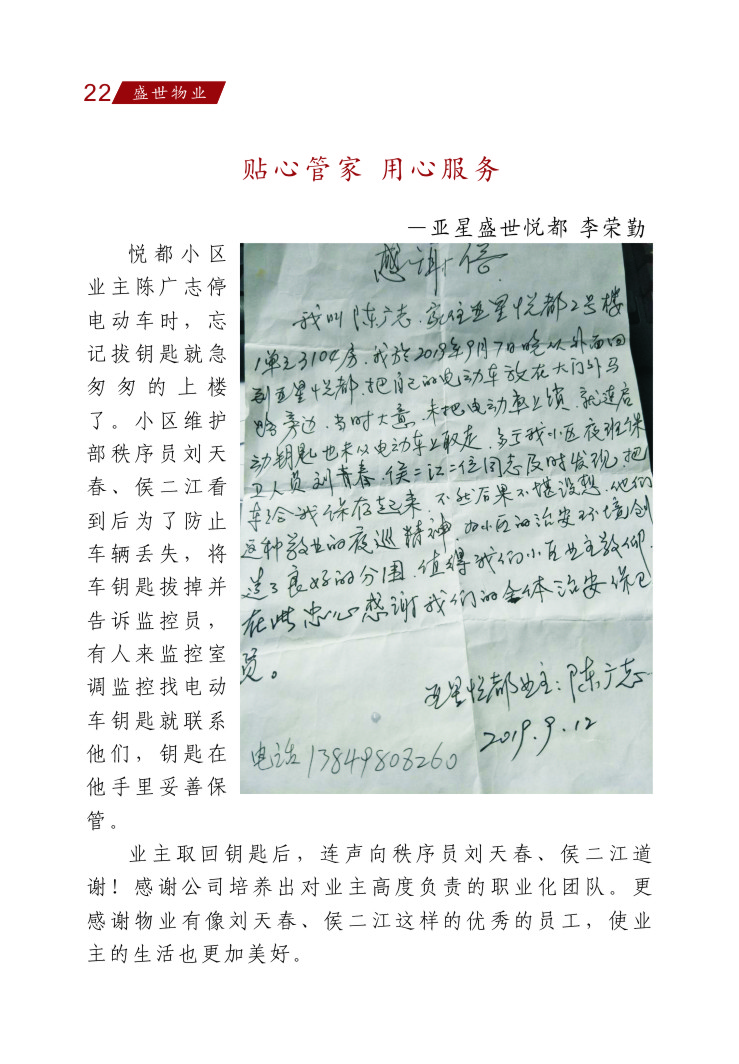 22 盛世物业
贴心管家 用心服务
—亚星盛世悦都 李荣勤
悦都小区
业主陈广志停
电动车时，忘
记拔钥匙就急
匆匆的上楼
了。小区维护
部秩序员刘天
春、侯二江看
到后为了防止
车辆丢失，将
车钥匙拔掉并
告诉监控员，
有人来监控室
调监控找电动
车钥匙就联系
他们，钥匙在
他手里妥善保
管。
感谢信
我叫陈广志.家住亚星悦都2号楼
1单元3104房.我於2019年9月7日晚从外面回
到亚星悦都.把自己的电动车放在大门外马
路旁边.当时大意.未把电动車上锁.就连启
动钥匙也未从电动车上取走.多亏我小区夜班保
卫人员刘青春.侯二江二位同志及时发现.把
车给我保存起来.不然后果不堪设想.他们
这种敬业的夜巡精神.为小区的治安环境创
造了良好的分围.值得我们小区业主敬仰.
在此忠心感谢我们的全体治安保卫
员。
亚星悦都业主:陈广志
2019.9.12
电话 13849808260
业主取回钥匙后，连声向秩序员刘天春、侯二江道
谢！感谢公司培养出对业主高度负责的职业化团队。更
感谢物业有像刘天春、侯二江这样的优秀的员工，使业
主的生活也更加美好。